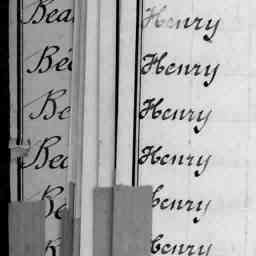 Bea Henry
Be Henry
Be Henry
Bea Henry
Be Henry
Henry